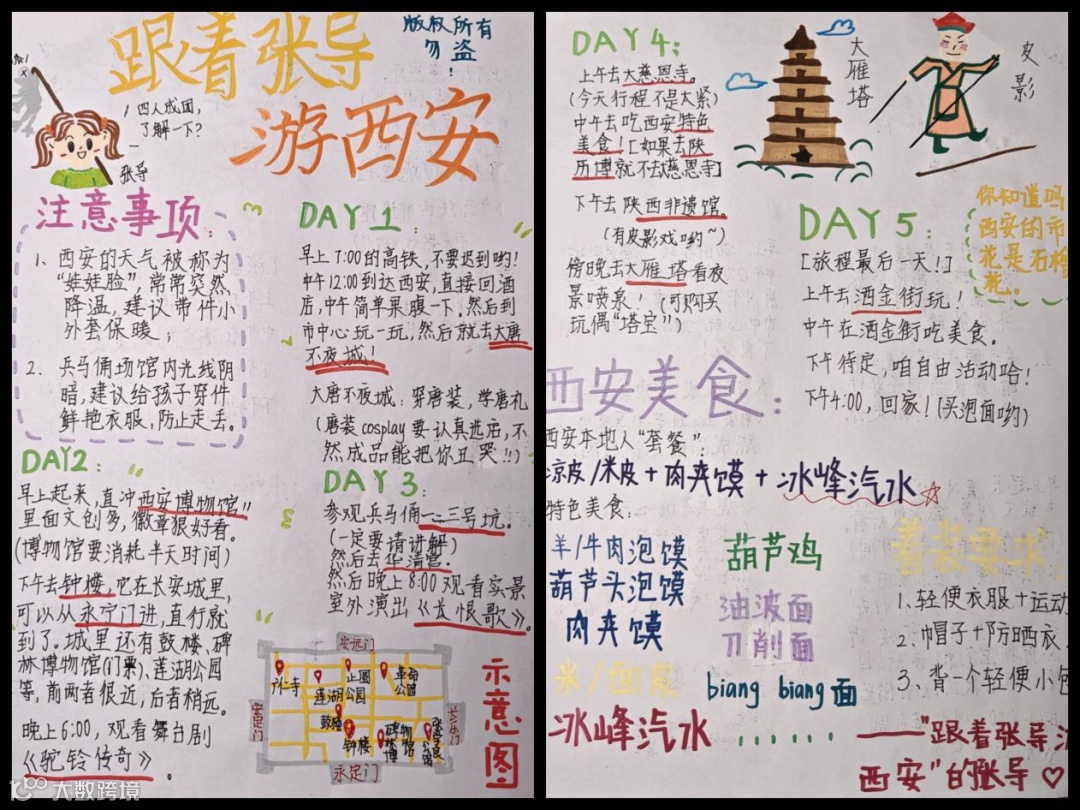 跟着张导
游西安
版权所有
勿盗
!
四人成团,
了解一下?
张导
注意事项:
1、西安的天气被称为
“娃娃脸”,常常突然
降温,建议带件小
外套保暖;
2、兵马俑场馆内光线阴
暗,建议给孩子穿件
鲜艳衣服,防止走丢。
DAY 1:
早上7:00的高铁,不要迟到哟!
中午12:00到达西安,直接回酒
店,中午简单果腹一下。然后到
市中心玩一玩,然后就去大唐
不夜城!
大唐不夜城:穿唐装,学唐礼
(唐装cosplay要认真选店,不
然成品能把你丑哭!!)
DAY2:
早上起来,直冲西安博物馆!!
里面文创多,徽章狠好看。
(博物馆要消耗半天时间)
下午去钟楼,它在长安城里,
可以从永宁门进,直行就
到了。城里还有鼓楼、碑
林博物馆(门票)、莲湖公园
等,前两者很近,后者稍远。
晚上6:00,观看舞台剧
《驼铃传奇》。
DAY 3:
参观兵马俑一二三号坑。
(一定要请讲解)
然后去华清宫。
然后晚上8:00观看实景
室外演出《长恨歌》。
安远门
革命
公园
莲湖
公园
鼓楼
钟楼
安定门
长乐门
永定门
示意图
DAY 4:
上午去大慈恩寺。
(今天行程不是太紧)
中午去吃西安特色
美食![如果去陕
历博就不去慈恩寺]
下午去陕西非遗馆。
(有皮影戏哟~)
傍晚去大雁塔看夜
景喷泉!(可购买
玩偶“塔宝”)
大雁塔
皮影
DAY 5:
[旅程最后一天!]
上午去洒金街玩!
中午在洒金街吃美食。
下午待定,咱自由活动哈!
下午4:00,回家!(买泡面哟)
你知道吗
西安的市
花是石榴
花。
西安美食:
西安本地人“套餐”:
凉皮/米皮+肉夹馍+冰峰汽水
特色美食:
羊/牛肉泡馍
葫芦头泡馍
肉夹馍
米/面皮
冰峰汽水
葫芦鸡
油泼面
刀削面
biang biang面
......
着装要求:
1、轻便衣服+运动
2、帽子+防晒衣
3、背一个轻便小包
——“跟着张导游
西安”的张导♡
大数跨境